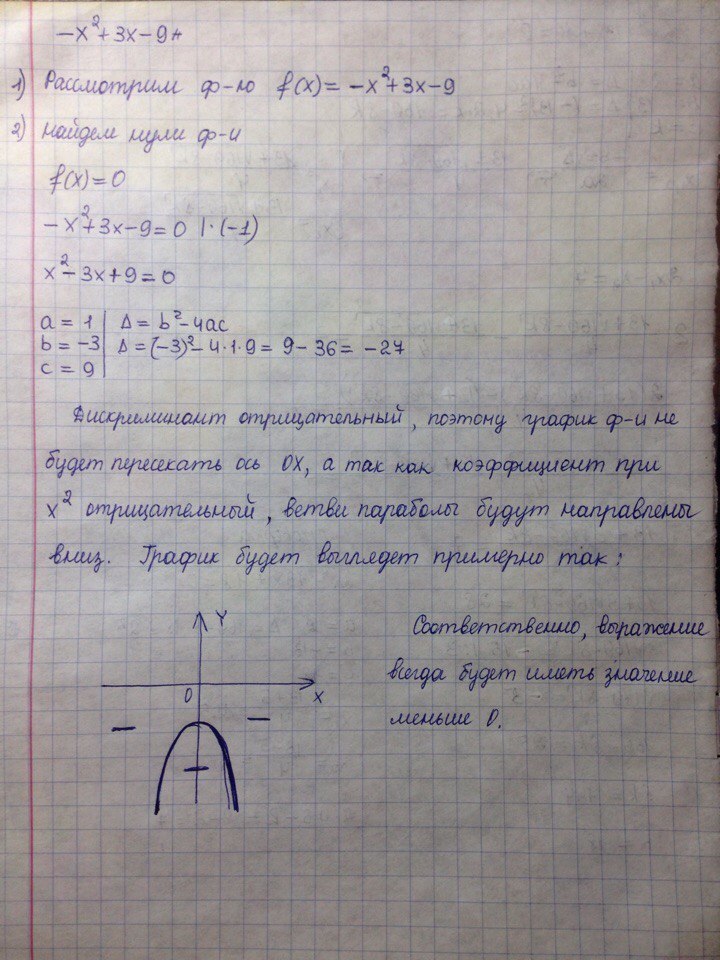 -x²+3x-9+
1) Рассмотрим ф-ю f(x)= -x²+3x-9
2) найдем нули ф-и
f(x)=0
-x²+3x-9=0 |·(-1)
x²-3x+9=0
a = 1 | Δ= b²-4ac
b = -3 | Δ=(-3)²-4·1·9= 9-36= -27
c = 9
Дискриминант отрицательный, поэтому график ф-и не
будет пересекать ось OX, а так как коэффициент при
x² отрицательный, ветви параболы будут направлены
вниз. График будет выглядет примерно так:
Y
0
X
Соответственно, выражение
всегда будет иметь значение
меньше 0.